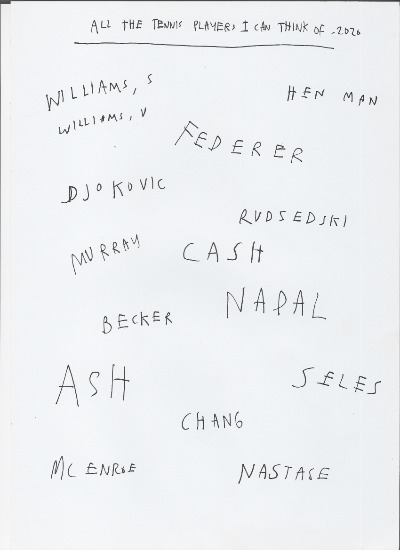 ALL THE TENNIS PLAYERS I CAN THINK OF -2020
WILLIAMS, S
HEN MAN
WILLIAMS, V
FEDERER
DJOKOVIC
RUDSEDSKI
MURRAY
CASH
NADAL
BECKER
ASH
SELES
CHANG
MC ENROE
NASTASE